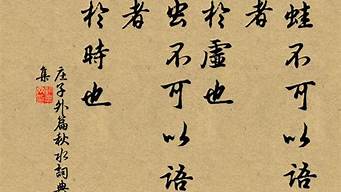 蛙不可以語
者
於虛也
虫不可以語
者
於時也
庄子外篇秋水詞典
集